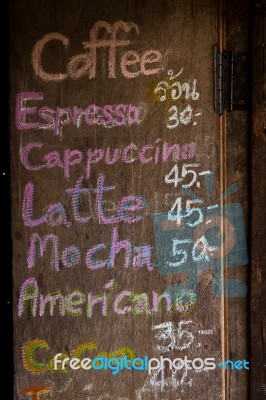 Coffee
ร้อน
Espresso 30.-
Cappuccino
45.-
Latte 45.-
Mocha 50.-
Americano
35.-
freedigitalphotos.net